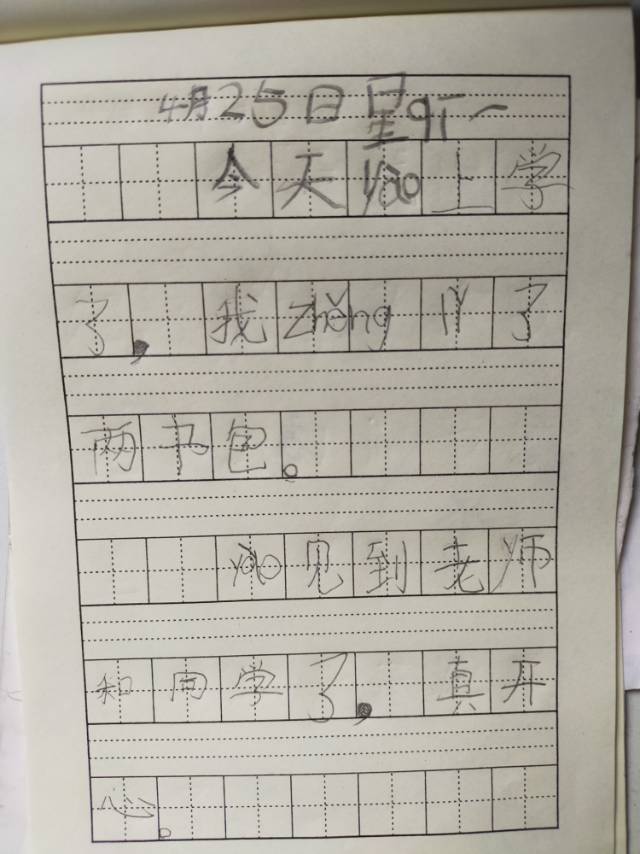 4月25日星qī一
今天yào上学
了,我zhěng lǐ了
两书包。
yào见到老师
和同学了,真开
心。